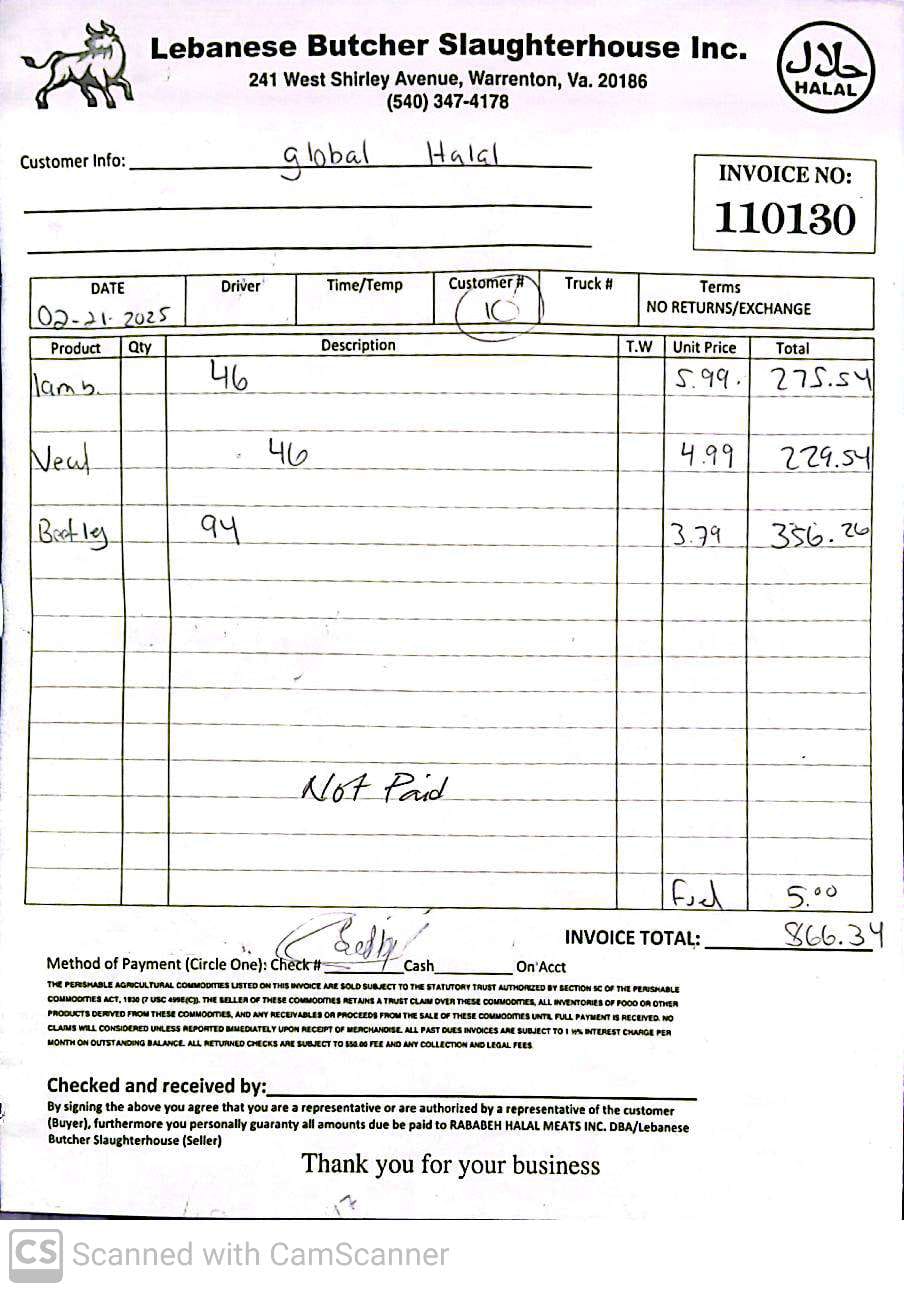 Lebanese Butcher Slaughterhouse Inc.
241 West Shirley Avenue, Warrenton, Va. 20186
(540) 347-4178
حلال
HALAL
Customer Info: global Halal
INVOICE NO:
110130
DATE Driver Time/Temp Customer # Truck # Terms
02-21-2025 10 NO RETURNS/EXCHANGE
Product Qty Description T.W Unit Price Total
lamb. 46 5.99. 275.54
Veal 46 4.99 229.54
Beef leg 94 3.79 356.26
Not Paid
Fuel 5.00
INVOICE TOTAL: 866.34
Method of Payment (Circle One): Check # Cash On Acct
THE PERISHABLE AGRICULTURAL COMMODITIES LISTED ON THIS INVOICE ARE SOLD SUBJECT TO THE STATUTORY TRUST AUTHORIZED BY SECTION 5C OF THE PERISHABLE
COMMODITIES ACT, 1930 (7 USC 499E(C)). THE SELLER OF THESE COMMODITIES RETAINS A TRUST CLAIM OVER THESE COMMODITIES, ALL INVENTORIES OF FOOD OR OTHER
PRODUCTS DERIVED FROM THESE COMMODITIES, AND ANY RECEIVABLES OR PROCEEDS FROM THE SALE OF THESE COMMODITIES UNTIL FULL PAYMENT IS RECEIVED. NO
CLAIMS WILL CONSIDERED UNLESS REPORTED IMMEDIATELY UPON RECEIPT OF MERCHANDISE. ALL PAST DUES INVOICES ARE SUBJECT TO 1 ½% INTEREST CHARGE PER
MONTH ON OUTSTANDING BALANCE. ALL RETURNED CHECKS ARE SUBJECT TO $50.00 FEE AND ANY COLLECTION AND LEGAL FEES
Checked and received by:
By signing the above you agree that you are a representative or are authorized by a representative of the customer
(Buyer), furthermore you personally guaranty all amounts due be paid to RABABEH HALAL MEATS INC. DBA/Lebanese
Butcher Slaughterhouse (Seller)
Thank you for your business
17
CS Scanned with CamScanner